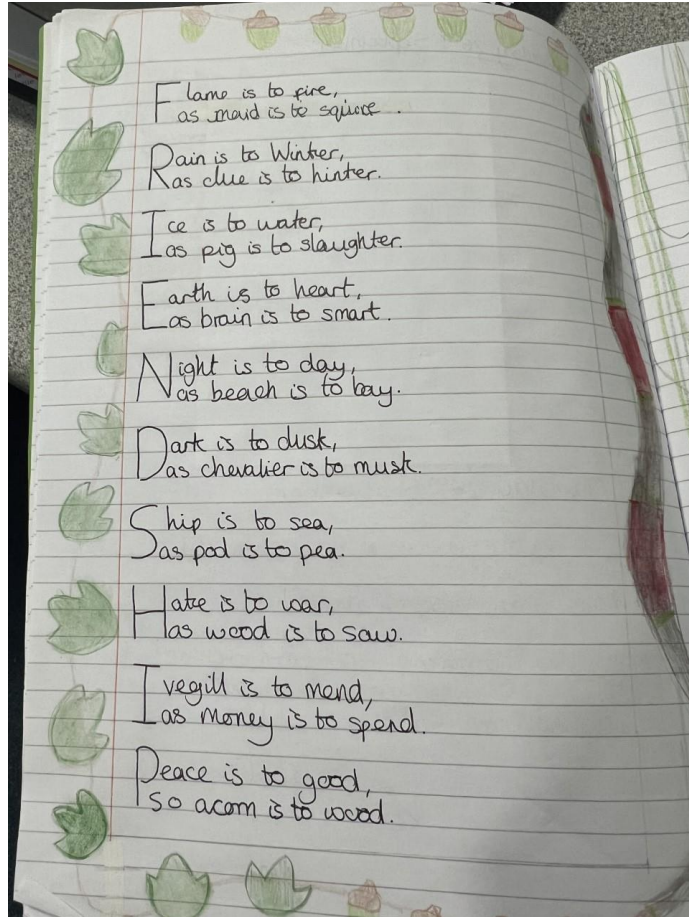 Flame is to fire,
as maid is to squire.
Rain is to Winter,
as clue is to hinter.
Ice is to water,
as pig is to slaughter.
Earth is to heart,
as brain is to smart.
Night is to day,
as beach is to bay.
Dark is to dusk,
as chevalier is to musk.
Ship is to sea,
as pod is to pea.
Hate is to war,
as wood is to saw.
Ivegill is to mend,
as money is to spend.
Peace is to good,
so acorn is to wood.